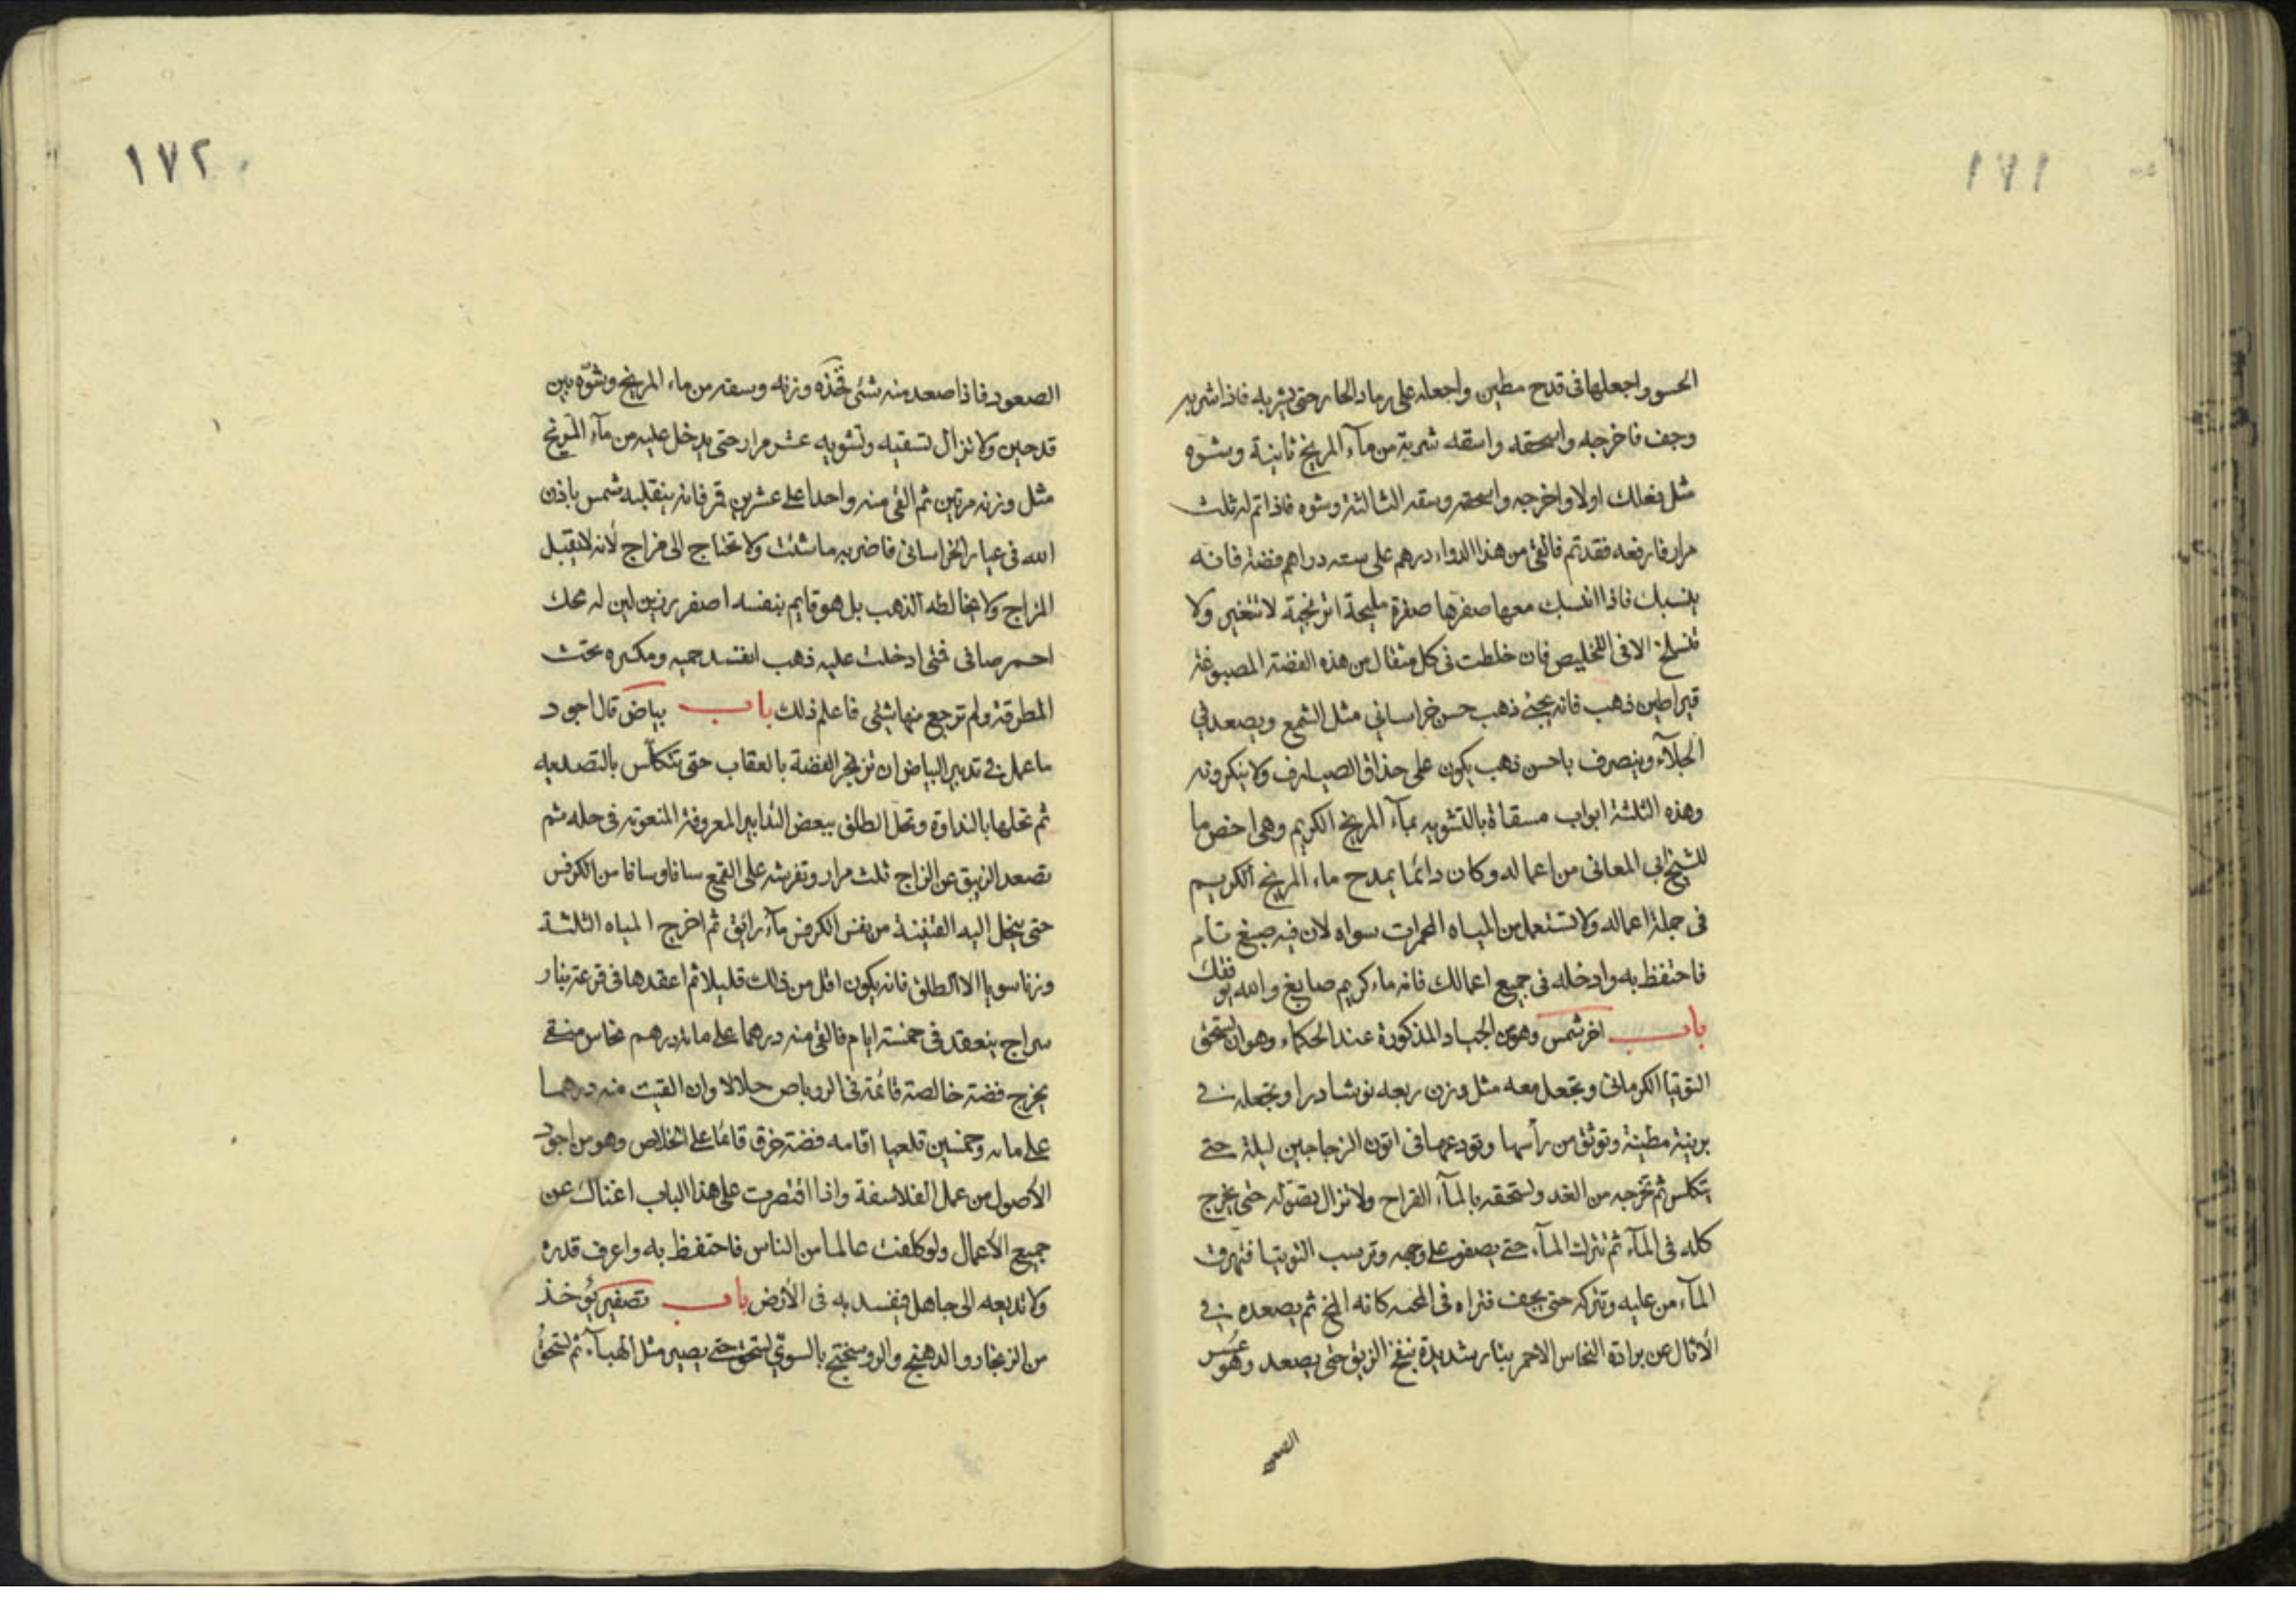 ١٧١
الحسو واجعلها فى قدح مطين واجعله على رماد الحار حتى يشربه فاذا شربه
وجف فاخرجه واسحقه واسقه شربة من مآء المريخ ثانية وشوه
مثل فعلك اولا واخرجه واسحقه وسقه الثالثة وشوه فاذا تم له ثلث
مرار فارفعه فقد تم فالقى من هذا الدواء درهم على سته دراهم فضة فانه
ينسبك فاذا انسبك معها صفرها صفرة مليحة اترنجية لا تتغير ولا
تنسلخ الا فى التخليص فان خلطت فى كل مثقال من هذه الفضة المصبوغة
قيراطين ذهب فانه يجئ ذهب حسن خراسانى مثل الشمع ويصعد فى
الجلآء وينصرف باحسن ذهب يكون على حذاق الصيارف ولا ينكرونه
وهذه الثلثة ابواب مسقاة بالتشويه بمآء المريخ الكريم وهى اخص ما
للشيخ ابى المعانى من اعماله وكان دائما يمدح ماء المريخ الكريم
فى جملة اعماله ولا تستعمل من المياه المحمرات سواه لان فيه صبغ تام
فاحتفظ به وادخله فى جميع اعمالك فانه ماء كريم صابغ والله يوفقك
باب اخر شمس وهو من الجياد المذكورة عند الحكماء وهو ان تسحق
التوتيا الكرمانى وتجعل معه مثل وزن ربعه نوشادرا وتجعله فى
برنية مطينة وتوثق من رأسها وتودعها فى اتون الزجاجين ليلة حتى
يتكلس ثم تخرجه من الغد وتسحقه بالمآء القراح ولا تزال تصوله حتى يخرج
كله فى المآء ثم تترك المآء حتى يصفو على وجهه وترسب التوتيا فتهرق
المآء من عليه وتتركه حتى يجف فتراه فى كانه المخ ثم يصعده فى
الاثال عن برادة النحاس الاحمر بنار شديدة الزيبق حتى يصعد وهو عسر
الصعود
١٧٢
الصعود فاذا صعد منه شئى فخذه وزنه وسقه من ماء المريخ وشوّه بين
قدحين ولا تزال تسقيه وتشويه عشر مرار حتى يدخل عليه من مآء المريخ
مثل وزنه مرتين ثم القى منه واحدا على عشرين قمر فانه ينقلبه شمس باذن
الله فى عيار الخراسانى فاضربه ما شئت ولا تحتاج الى مزاج لأنه لا يقبل
المزاج ولا يخالطه الذهب بل هو قايم بنفسه اصفر رزين لين له محك
احمر صافى فمتى ادخلت عليه ذهب انفسد جميه ومكسره تحت
المطرقة ولم ترجع منها بشئى فاعلم ذلك باب بياض قال اجود
ما عمل فى تدبير البياض ان تزنجر الفضة بالعقاب حتى تتكلّس بالتصديه
ثم تحلها بالنداوة وتحل الطلق ببعض التدابير المعروفة المنعوته فى حله ثم
تصعد الزيبق عن الزاج ثلث مرار وتفرشه على القمع سافا وسافا من الكرفس
حتى ينحل اليه القنينة من نفس الكرفس مآء رائق ثم اخرج المياه الثلثة
وزنا سويا الا الطلق فانه يكون اقل من ذلك قليلا ثم اعقدها فى قرعة بنار
سراج ينعقد فى خمسة ايام فالقى منه درهما على مائة درهم نحاس منقى
يخرج فضة خالصة قائمة فى الروباص حلالا وان القيت منه درهما
على مائه وخمسين قلعيا اقامه فضة خرق قائما على الخلاص وهو من اجود
الأصول من عمل الفلاسفة واذا اقتصرت على هذا الباب اغناك عن
جميع الأعمال ولو كلفت عالما من الناس فاحتفظ به واعرف قدره
ولا تديعه الى جاهل فيفسد به فى الأرض باب تصفير يؤخذ
من الزنجار والدهنج والروسختج بالسوى تسحق حتى يصير مثل الهبآء ثم تسحق